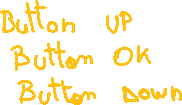 Button UP
Button OK
Button Down